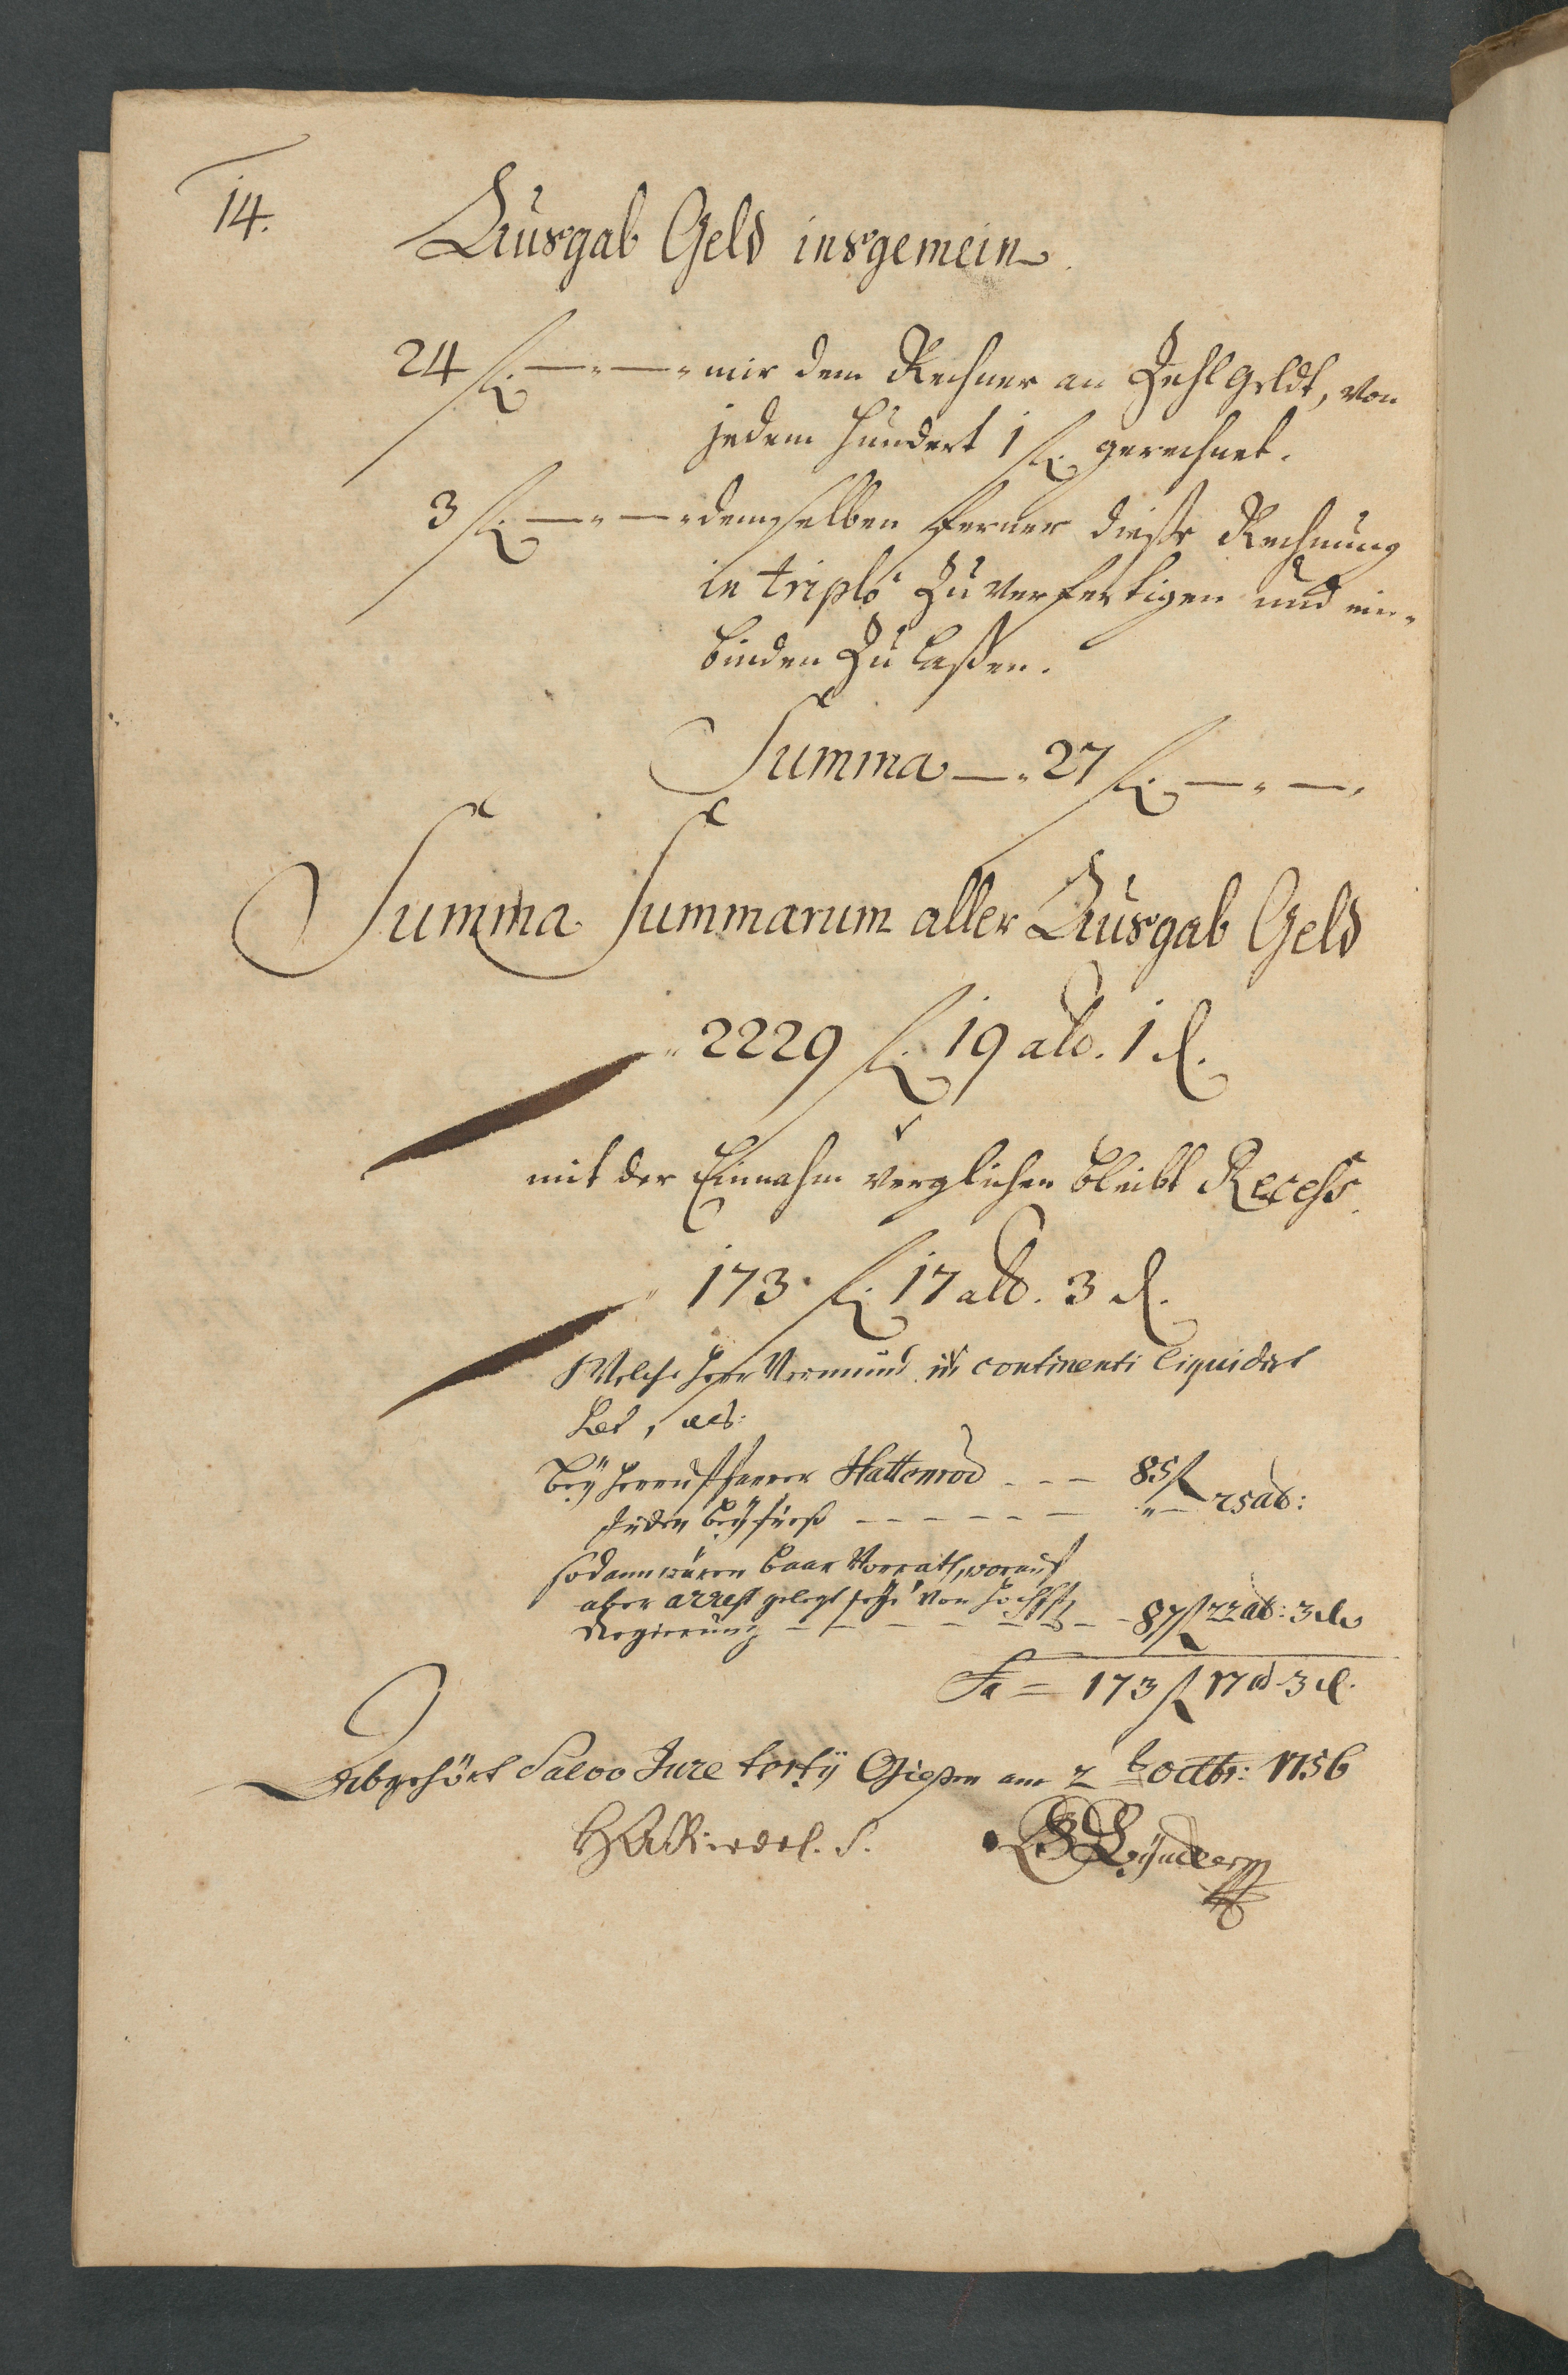 14.
Ausgab Geld insgemein.
24 fl. —„—„ mir dem Rechner an Zehlgeldt, von
jedem Hundert 1 fl. gerechnet.
3 fl. —„—„ demselben ferner diese Rechnung
in triplo zu verfertigen und ein-
binden zu laßen.
Summa —„ 27 fl. —„—„
Summa Summarum aller Ausgab Geld
„ 2229 fl. 19 alb. 1 d.
mit der Einnahm verglichen bleibt Recess
„ 173 fl. 17 alb. 3 d.
Welche Herr Vormund in continenti liquidirt
hat, als:
bey Herrn Pfarrer Hattenrod - - - 85 fl
Juden - - - - - - „ — 25 alb:
sodann wären baar Vorrath, worauf
aber arrest gelegt seye von
Regierung - - - - - - - 87 fl 22 alb: 3 d.
Sa = 173 fl 17 alb 3 d.
Abgehört Salvo Jure tertij Gießen am 2 t. octbr: 1756